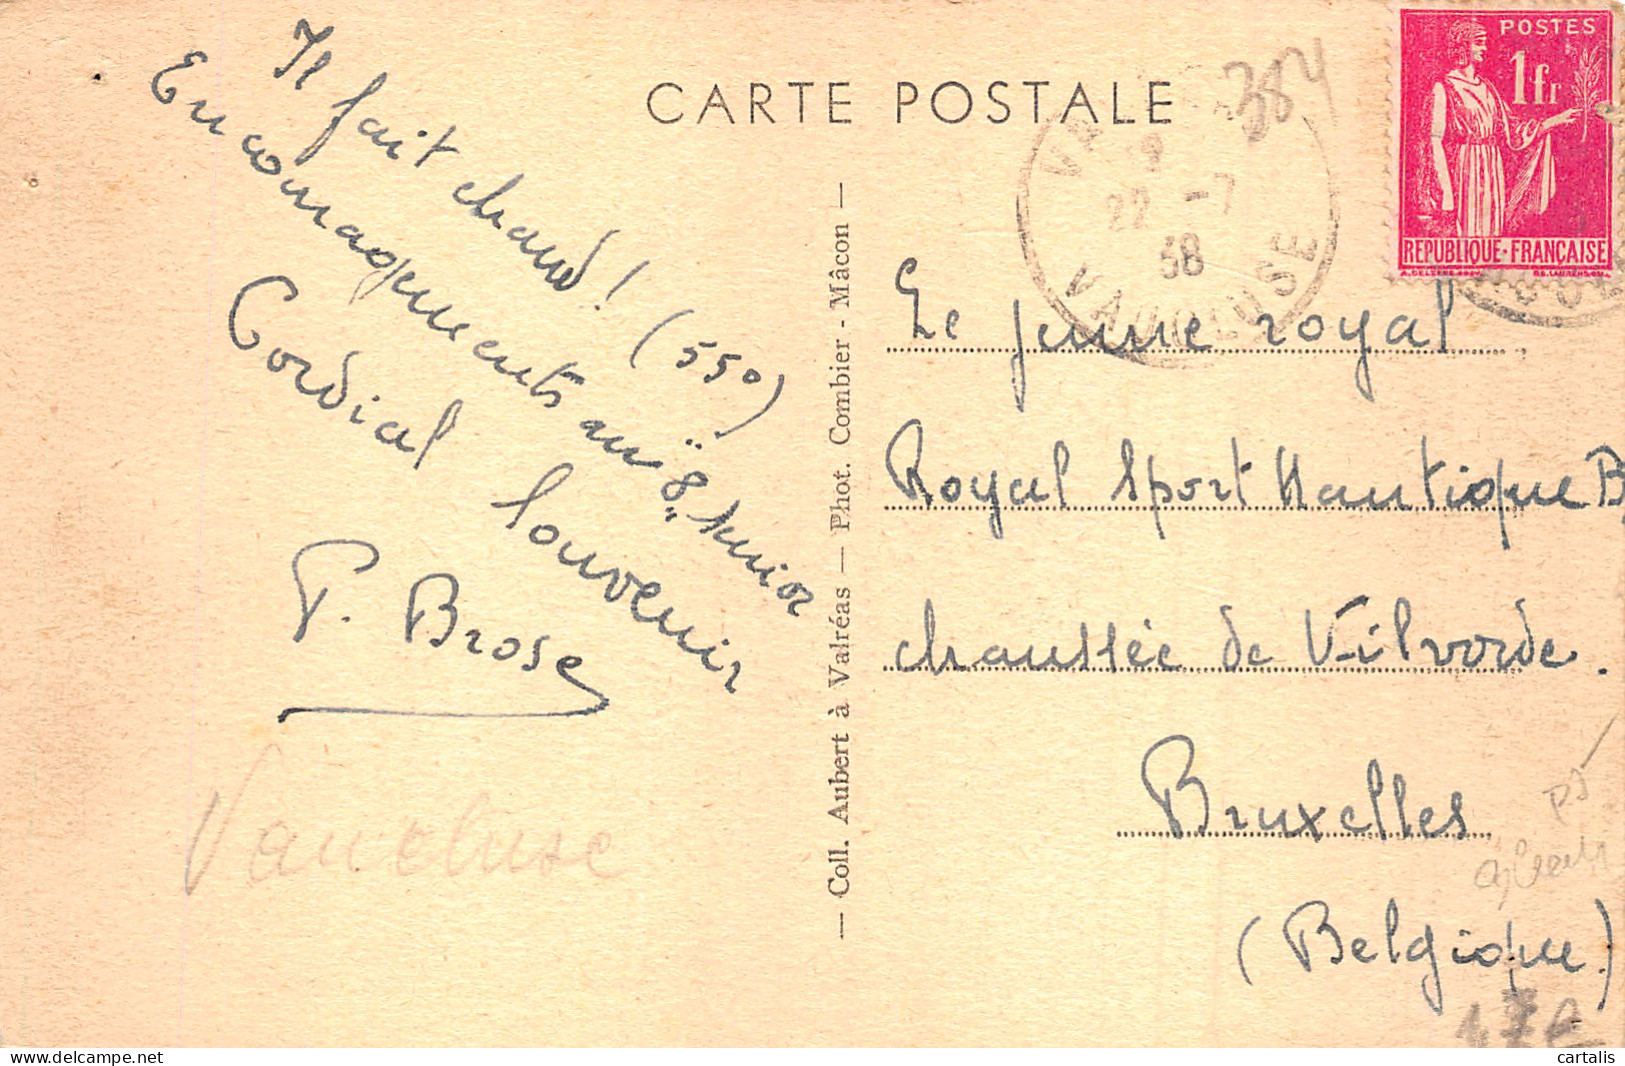 CARTE POSTALE
384
POSTES
1fr
REPUBLIQUE·FRANÇAISE
VA
9
22 -7
38
VAUCLUSE
Il fait chaud! (55°)
Encouragements au "8" junior
Cordial souvenir
P. Brose
Vaucluse
— Coll. Aubert à Valréas — Phot. Combier - Mâcon —
Le jeune royal
Royal Sport Nautique B
chaussée de Vilvorde.
Bruxelles
(Belgique)
cartalis